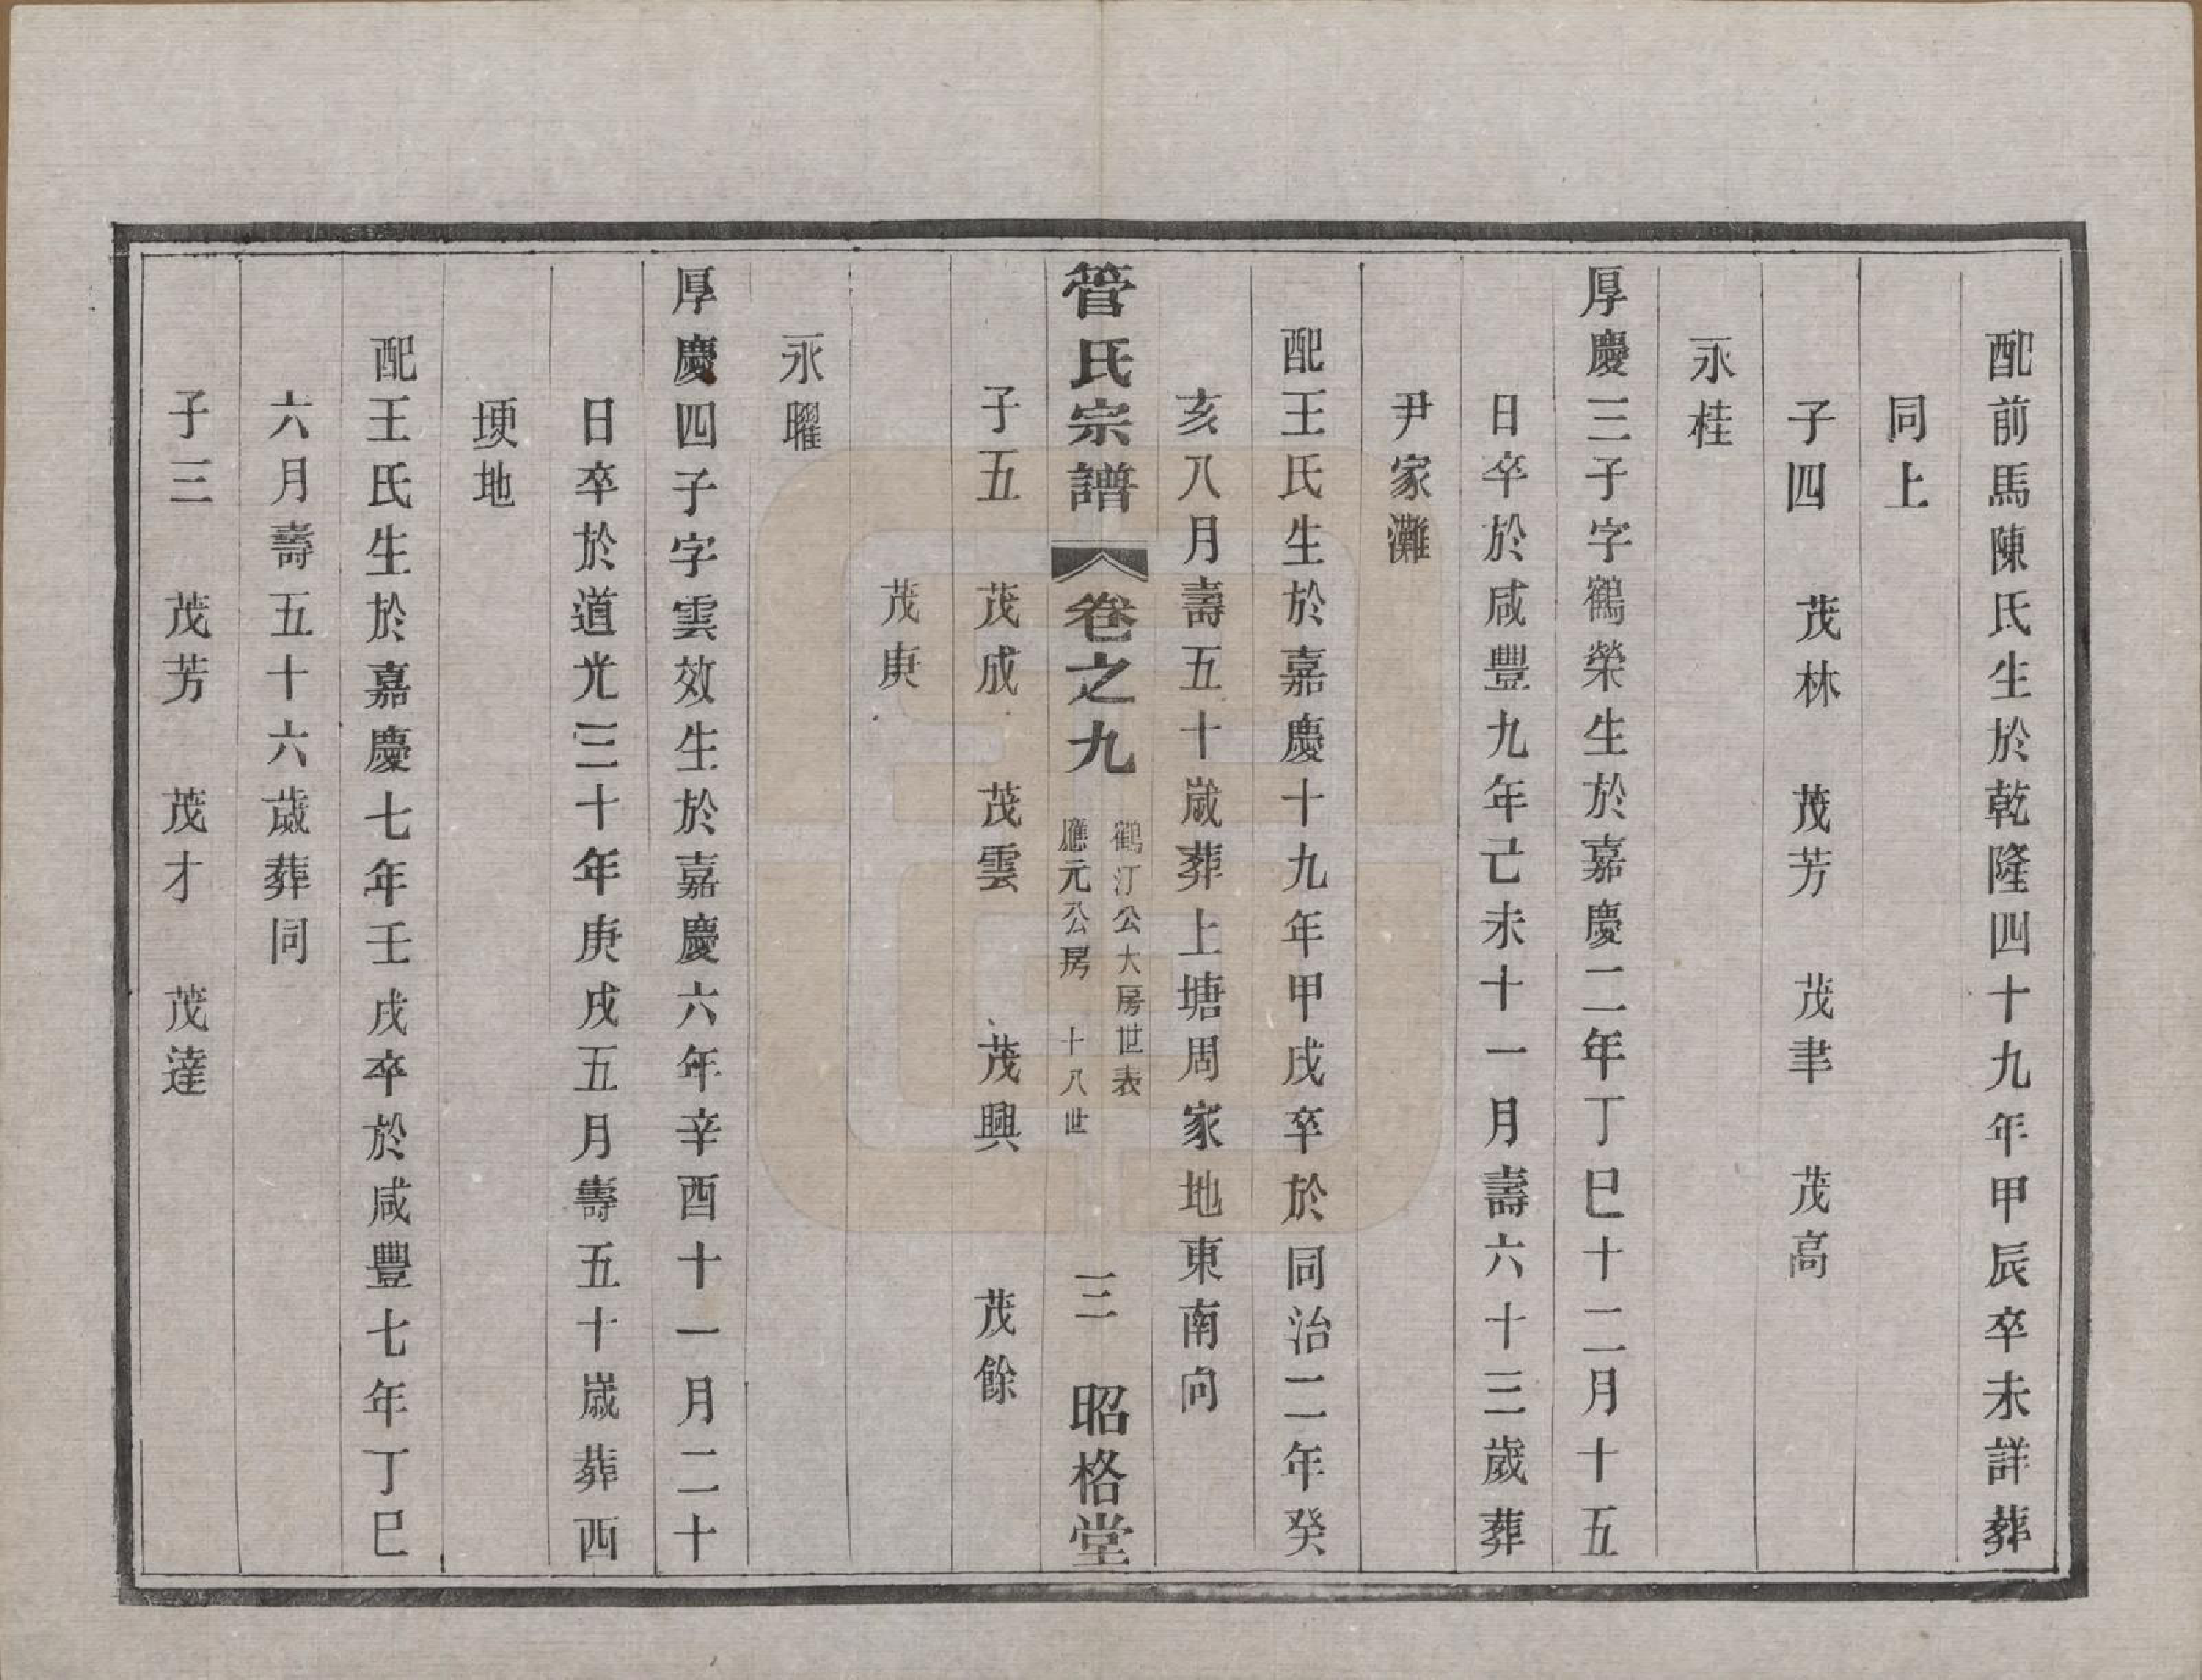 配前馬陳氏生於乾隆四十九年甲辰卒未詳葬
同上
子四　茂林　茂芳　茂聿　茂高
永桂
厚慶三子字鶴榮生於嘉慶二年丁巳十二月十五
日卒於咸豐九年己未十一月壽六十三歲葬
尹家灘
配王氏生於嘉慶十九年甲戌卒於同治二年癸
亥八月壽五十歲葬上塘周家地東南向
管氏宗譜　卷之九　鶴汀公大房世表　應元公房　十八世　三　昭格堂
子五　茂成　茂雲　茂興　茂餘
茂庚
永曜
厚慶四子字雲效生於嘉慶六年辛酉十一月二十
日卒於道光三十年庚戌五月壽五十歲葬西
埂地
配王氏生於嘉慶七年壬戌卒於咸豐七年丁巳
六月壽五十六歲葬同
子三　茂芳　茂才　茂達